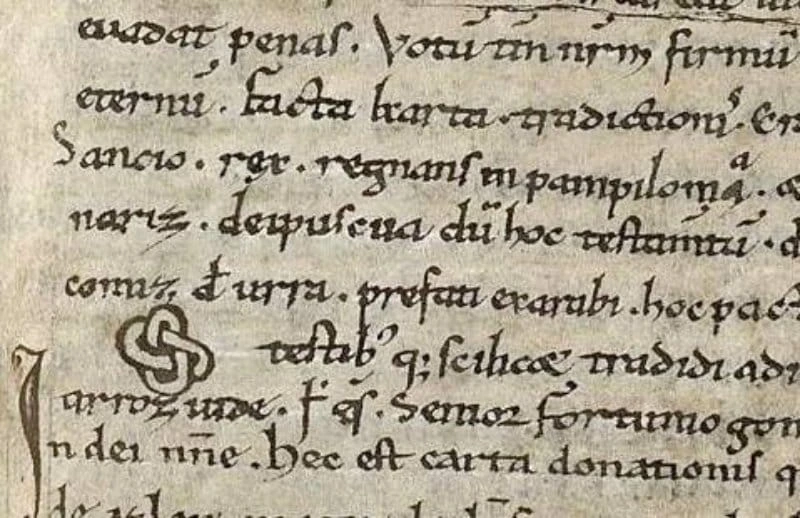 euadat penas. Votū tm̄ nr̄m firmū
eternū. facta karta. tradictionis. Er
Sancio. rex. regnans in pampilonia.
nariz. deipuscua dū hoc testam̄tū. d
comiz. đ urra. prefati exarabi. hoc pact
testib⁹ q; scilicæ tradidi adi
Semor fortunio gon
In dei nn̄e. Hec est carta donationis q
de